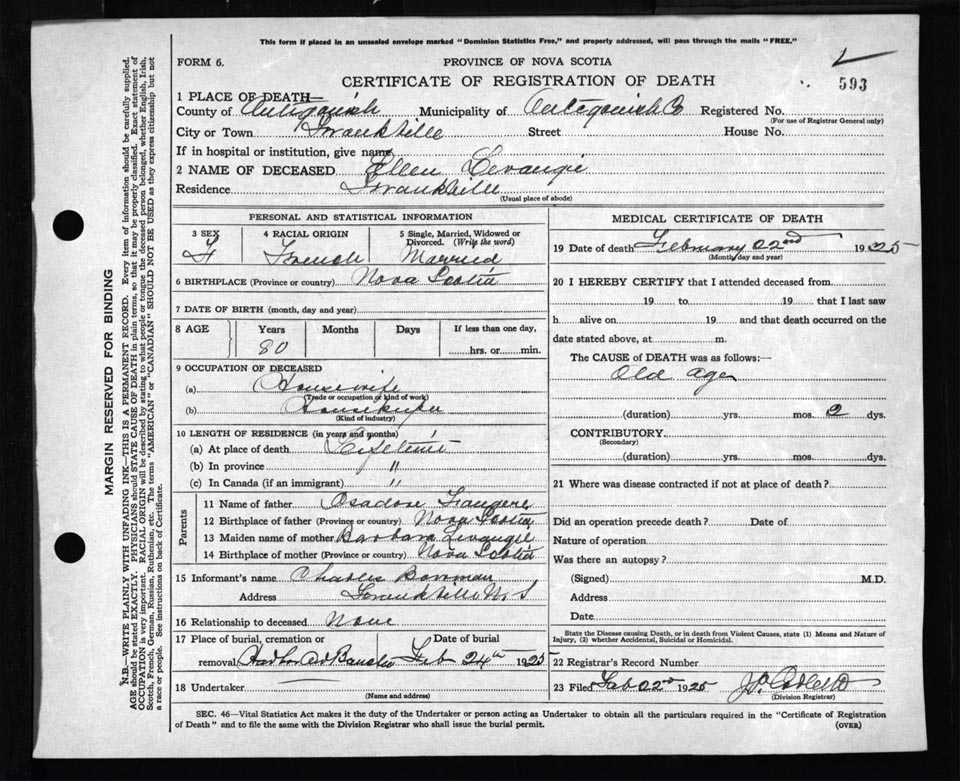 This form if placed in an unsealed envelope marked "Dominion Statistics Free," and properly addressed, will pass through the mails "FREE."
FORM 6.
PROVINCE OF NOVA SCOTIA
CERTIFICATE OF REGISTRATION OF DEATH
593
1 PLACE OF DEATH—
County of Antigonish Municipality of Antigonish Co Registered No.
(For use of Registrar General only)
City or Town Frankville Street House No.
If in hospital or institution, give name
2 NAME OF DECEASED Ellen Levangie
Residence Frankville
(Usual place of abode)
PERSONAL AND STATISTICAL INFORMATION
3 SEX F
4 RACIAL ORIGIN French
5 Single, Married, Widowed or Divorced. (Write the word) Married
6 BIRTHPLACE (Province or country) Nova Scotia
7 DATE OF BIRTH (month, day and year)
8 AGE Years Months Days If less than one day,
80 hrs. or min.
9 OCCUPATION OF DECEASED
(a) Housewife
(Trade or occupation or kind of work)
(b) Housekeeper
(Kind of industry)
10 LENGTH OF RESIDENCE (in years and months)
(a) At place of death Lifetime
(b) In province "
(c) In Canada (if an immigrant) "
Parents
11 Name of father
12 Birthplace of father (Province or country) Nova Scotia
13 Maiden name of mother Barbara Levangie
14 Birthplace of mother (Province or country) Nova Scotia
15 Informant's name Charles Bowman
Address Frankville N.S
16 Relationship to deceased None
17 Place of burial, cremation or removal Date of burial
Harbor Au Bouche Feb 24th 1925
18 Undertaker
(Name and address)
MEDICAL CERTIFICATE OF DEATH
19 Date of death February 22nd 1925
(Month, day and year)
20 I HEREBY CERTIFY that I attended deceased from
19 to 19 that I last saw
h alive on 19 and that death occurred on the
date stated above, at m.
The CAUSE of DEATH was as follows:—
Old age
(duration) yrs. mos. 2 dys.
CONTRIBUTORY
(Secondary)
(duration) yrs. mos. dys.
21 Where was disease contracted if not at place of death?
Did an operation precede death? Date of
Nature of operation
Was there an autopsy?
(Signed) M.D.
Address
Date
State the Disease causing Death, or in death from Violent Causes, state (1) Means and Nature of
Injury, (2) whether Accidental, Suicidal or Homicidal.
22 Registrar's Record Number
23 Filed Feb 22nd 1925
(Division Registrar)
SEC. 46—Vital Statistics Act makes it the duty of the Undertaker or person acting as Undertaker to obtain all the particulars required in the "Certificate of Registration
of Death" and to file the same with the Division Registrar who shall issue the burial permit. (OVER)
MARGIN RESERVED FOR BINDING
N.B.—WRITE PLAINLY WITH UNFADING INK—THIS IS A PERMANENT RECORD. Every item of information should be carefully supplied.
AGE should be stated EXACTLY. PHYSICIANS should STATE CAUSE OF DEATH in plain terms, so that it may be properly classified. Exact statement of
OCCUPATION is very important. RACIAL ORIGIN will be described by stating to what people or tongue the deceased person belonged, whether English, Irish,
Scotch, French, German, Russian, Ruthenian, etc. The terms "AMERICAN" or "CANADIAN" SHOULD NOT BE USED as they express citizenship but not
a race or people. See instructions on back of Certificate.